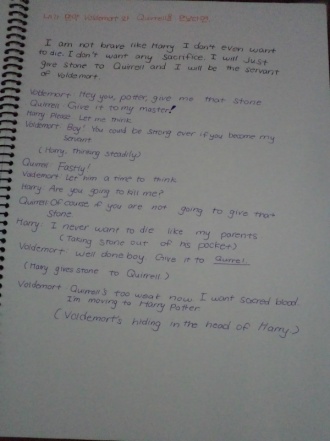 Voldemort Quirrell's
I am not brave like Harry I don't even want
to die. I don't want any sacrifice. I will just
give stone to Quirell and I will be the servant
of Voldemort.
Voldemort: Hey you, potter, give me that stone
Quirrell: Give it to my master!
Harry: Please Let me think
Voldemort: Boy! You could be strong ever if you become my
servant
(Harry, thinking steadily)
Quirrell: Fastly!
Voldemort: Let him a time to think
Harry: Are you going to kill me?
Quirrell: Of course if you are not going to give that
Stone
Harry: I never want to die like my parents
(Taking stone out of his pocket)
Voldemort: well done boy Give it to Quirrel
(Harry gives stone to Quirrell)
Voldemort: Quirrell's too weak now I want sacred blood.
I'm moving to Harry Potter
(Voldemort's hiding in the head of Harry)